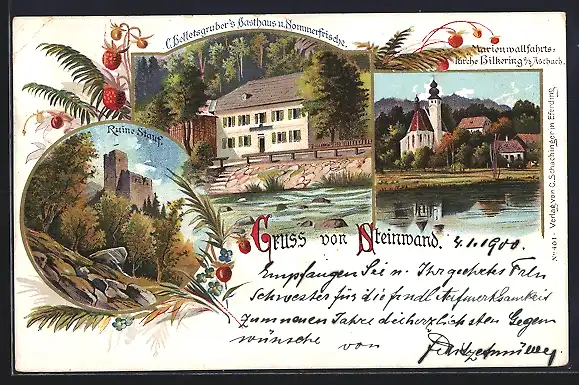 C. Hofletsgruber's Gasthaus u. Sommerfrische.
Marienwallfahrts-
kirche Hilkering b/Aschach.
Ruine Stauf.
Gruss von Steinwand. 4.1.1900.
Empfangen Sie u. Ihr geehrtes Frln
Schwester für die frndl. Aufmerksamkeit
zum neuen Jahre die herzlichsten Gegen
wünsche von
No 401 - Verlag von C. Schachinger in Eferding.